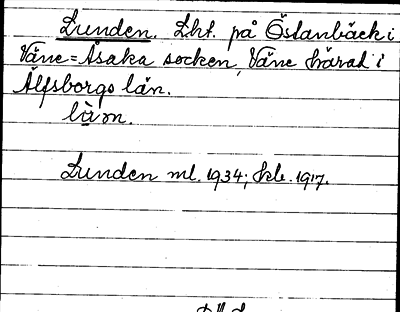 Lunden. Lht. på Östanbäck i
Väne=Åsaka socken, Väne härad i
Älfsborgs län.
Lunden ml. 1934; skb. 1917.